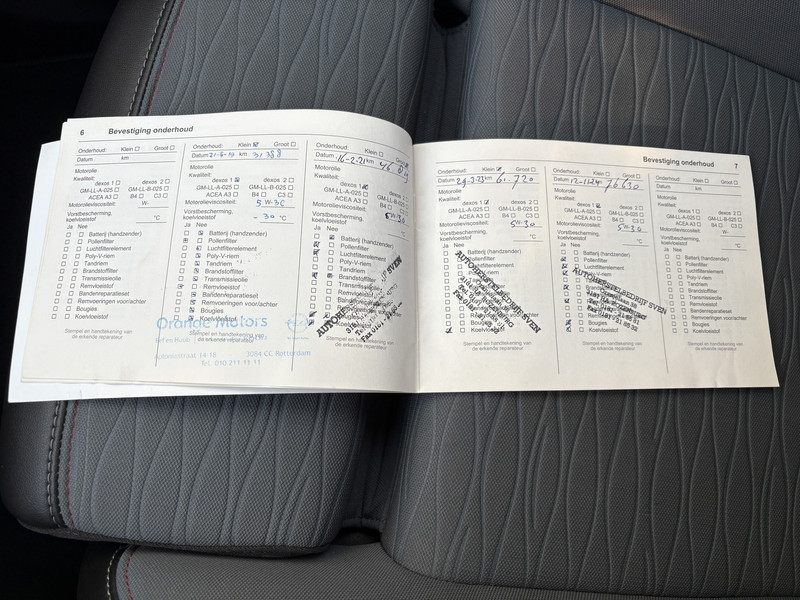 6 Bevestiging onderhoud
Onderhoud: Klein Groot
Datum km
Motorolie
Kwaliteit:
dexos 1 dexos 2
GM-LL-A-025 GM-LL-B-025
ACEA A3 B4 C3
Motorolieviscositeit: W-
Vorstbescherming,
koelvloeistof: °C
Ja Nee
Batterij (handzender)
Pollenfilter
Luchtfilterelement
Poly-V-riem
Tandriem
Brandstoffilter
Transmissieolie
Remvloeistof
Bandenreparatieset
Remvoeringen voor/achter
Bougies
Koelvloeistof
Stempel en handtekening van
de erkende reparateur
Onderhoud: Klein Groot
Datum 21-6-19 km 31388
Motorolie
Kwaliteit:
dexos 1 dexos 2
GM-LL-A-025 GM-LL-B-025
ACEA A3 B4 C3
Motorolieviscositeit: 5 W-30
Vorstbescherming,
koelvloeistof: -30 °C
Ja Nee
Batterij (handzender)
Pollenfilter
Luchtfilterelement
Poly-V-riem
Tandriem
Brandstoffilter
Transmissieolie
Remvloeistof
Bandenreparatieset
Remvoeringen voor/achter
Bougies
Koelvloeistof
Stempel en handtekening van
de erkende reparateur
3084 CC Rotterdam
Tel. 010 211 11 11
Onderhoud: Klein Groot
Datum 16-2-21 km
Motorolie
Kwaliteit:
dexos 1 dexos 2
GM-LL-A-025 GM-LL-B-025
ACEA A3 B4 C3
Motorolieviscositeit: 5W-30
Vorstbescherming,
koelvloeistof: °C
Ja Nee
Batterij (handzender)
Pollenfilter
Luchtfilterelement
Poly-V-riem
Tandriem
Brandstoffilter
Transmissieolie
Remvloeistof
Koelvloeistof
Stempel en handtekening
de erkende reparateur
Bevestiging onderhoud 7
Onderhoud: Klein Groot
Datum km 61.720
Motorolie
Kwaliteit:
dexos 1 dexos 2
GM-LL-A-025 GM-LL-B-025
ACEA A3 B4 C3
Motorolieviscositeit: 5W-30
Vorstbescherming,
koelvloeistof: °C
Ja Nee
Batterij (handzender)
Pollenfilter
Luchtfilterelement
Bougies
Koelvloeistof
AUTOHERSTELBEDRIJF SVEN
Stempel en handtekening van
de erkende reparateur
Onderhoud: Klein Groot
Datum 12-11-24 76630
Motorolie
Kwaliteit:
dexos 1 dexos 2
GM-LL-A-025 GM-LL-B-025
ACEA A3 B4 C3
Motorolieviscositeit: 5W-30
Vorstbescherming,
koelvloeistof: °C
Ja Nee
Batterij (handzender)
Pollenfilter
Luchtfilterelement
Bougies
Koelvloeistof
AUTOHERSTELBEDRIJF SVEN
Stempel en handtekening van
de erkende reparateur
Onderhoud: Klein Groot
Datum km
Motorolie
Kwaliteit:
dexos 1 dexos 2
GM-LL-A-025 GM-LL-B-025
ACEA A3 B4 C3
Motorolieviscositeit: W-
Vorstbescherming,
koelvloeistof: °C
Ja Nee
Batterij (handzender)
Pollenfilter
Luchtfilterelement
Poly-V-riem
Tandriem
Brandstoffilter
Transmissieolie
Remvloeistof
Bandenreparatieset
Remvoeringen voor/achter
Bougies
Koelvloeistof
Stempel en handtekening van
de erkende reparateur